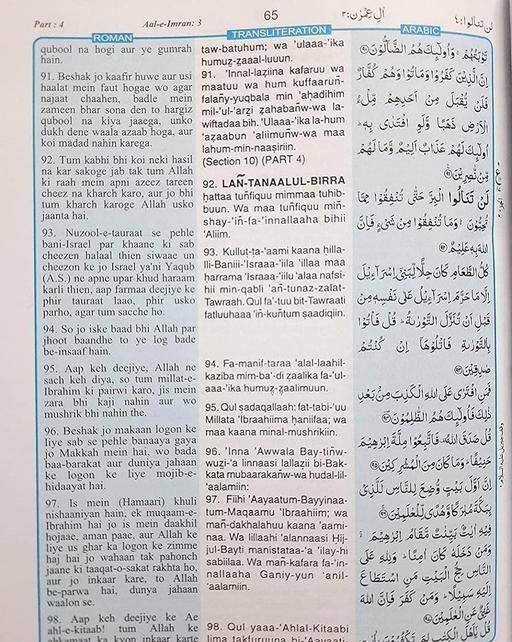 Part : 4
Aal-e-Imran: 3
65
اٰلِ عِمْرٰن:٣
لن تنالوا:٤
ROMAN
qubool na hogi aur ye gumrah
hain.
91. Beshak jo kaafir huwe aur usi
haalat mein faut hogae wo agar
najaat chaahen, badle mein
zameen bhar sona den to hargiz
qubool na kiya jaaega, unko
dukh dene waala azaab hoga, aur
koi madad nahin karega.
92. Tum kabhi bhi koi neki hasil
na kar sakoge jab tak tum Allah
ki raah mein apni azeez tareen
cheez na kharch karo, aur jo bhi
tum kharch karoge Allah usko
jaanta hai.
93. Nuzool-e-tauraat se pehle
bani-Israel par khaane ki sab
cheezen halaal thien siwaae un
cheezon ke jo Israel ya'ni Yaqub
(A.S.) ne apne upar khud haraam
karli thien, aap farmaa deejiye ke
phir tauraat laao, phir usko
parho, agar tum sacche ho.
94. So jo iske baad bhi Allah par
jhoot baandhe to ye log bade
be-insaaf hain.
95. Aap keh deejiye, Allah ne
sach keh diya, so tum millat-e-
Ibrahim ki pairwi karo, jis mein
zara bhi kaji nahin aur wo
mushrik bhi nahin the.
96. Beshak jo makaan logon ke
liye sab se pehle banaaya gaya
jo Makkah mein hai, wo bada
baa-barakat aur duniya jahaan
ke logon ke liye mojib-e-
hidaayat hai.
97. Is mein (Hamaari) khuli
nishaaniyan hain, ek muqaam-e-
Ibrahim hai jo is mein daakhil
hojaae, aman paae, aur Allah ke
liye us ghar ka logon ke zimme
haj hai jo wahaan tak pahonch
jaane ki taaqat-o-sakat rakhta ho,
aur jo inkaar kare, to Allah
be-parwa hai, dunya jahaan
waalon se.
98. Aap keh deejiye ke Ae
ahl-e-kitaab! tum Allah ke
ahkamaat ka kyon inkaar karte
TRANSLITERATION
taw-batuhum; wa 'ulaaa-'ika
humuẓ-ẓaaal-luuun.
91. 'Innal-laẓiina kafaruu wa
maatuu wa hum kuffaaruñ-
falañy-yuqbala min 'aḥadihim
mil-'ul-'arẓi ẓahabañw-wa la-
wiftadaa bih. 'Ulaaa-'ika la-hum
'aẓaabun 'aliimuñw-wa maa
lahum-min-naaṣiriin.
(Section 10) (PART 4)
92. LAÑ-TANAALUL-BIRRA
ḥattaa tuñfiquu mimmaa tuhib-
buun. Wa maa tuñfiquu miñ-
shay-'iñ-fa-'innallaaha bihii
'Aliim.
93. Kulluṭ-ṭa-'aami kaana ḥilla-
lil-Baniii-'Israaa-'iila 'illaa maa
harrama 'Israaa-'iilu 'alaa nafsi-
hii min-qabli 'añ-tunaz-zalat-
Tawraah. Qul fa'-tuu bit-Tawraati
fatluuhaaa 'iñ-kuñtum ṣaadiqiin.
94. Fa-manif-taraa 'alal-laahil-
kaziba mim-ba'-di ẓaalika fa-'ul-
aaa-'ika humuẓ-ẓaalimuun.
95. Qul ṣadaqallaah: fat-tabi-'uu
Millata 'Ibraahiima ḥaniifaa; wa
maa kaana minal-mushrikiin.
96. 'Inna 'Awwala Bay-tiñw-
wuẓi-'a linnaasi lallaẓii bi-Bak-
kata mubaarakañw-wa hudal-lil-
'aalamiin:
97. Fiihi 'Aayaatum-Bayyinaa-
tum-Maqaamu 'Ibraahiim; wa
mañ-dakhalahuu kaana 'aami-
naa. Wa lillaahi 'alannaasi Ḥij-
jul-Bayti manistataa-'a 'ilay-hi
sabiilaa. Wa mañ-kafara fa-'in-
nallaaha Ganiy-yun 'anil-
'aalamiin.
98. Qul yaaa-'Ahlal-Kitaabi
lima takfuruuna bi-'Aayaati
ARABIC
تَوْبَتُهُمْ ۚ وَاُولٰٓئِكَ هُمُ الضَّآلُّوْنَ ۝٩٠
اِنَّ الَّذِيْنَ كَفَرُوْا وَمَاتُوْا وَهُمْ كُفَّارٌ
فَلَنْ يُّقْبَلَ مِنْ اَحَدِهِمْ مِّلْءُ
الْاَرْضِ ذَهَبًا وَّلَوِ افْتَدٰى بِهٖ ۭ
اُولٰٓئِكَ لَهُمْ عَذَابٌ اَلِيْمٌ وَّمَا لَهُمْ
مِّنْ نّٰصِرِيْنَ ۝٩١
لَنْ تَنَالُوا الْبِرَّ حَتّٰى تُنْفِقُوْا مِمَّا
تُحِبُّوْنَ ۭ وَمَا تُنْفِقُوْا مِنْ شَيْءٍ فَاِنَّ
اللّٰهَ بِهٖ عَلِيْمٌ ۝٩٢
كُلُّ الطَّعَامِ كَانَ حِلًّا لِّبَنِيْٓ اِسْرَآءِيْلَ
اِلَّا مَا حَرَّمَ اِسْرَآءِيْلُ عَلٰى نَفْسِهٖ مِنْ
قَبْلِ اَنْ تُنَزَّلَ التَّوْرٰىةُ ۭ قُلْ فَاْتُوْا
بِالتَّوْرٰىةِ فَاتْلُوْهَآ اِنْ كُنْتُمْ
صٰدِقِيْنَ ۝٩٣
فَمَنِ افْتَرٰى عَلَى اللّٰهِ الْكَذِبَ مِنْۢ بَعْدِ
ذٰلِكَ فَاُولٰٓئِكَ هُمُ الظّٰلِمُوْنَ ۝٩٤
قُلْ صَدَقَ اللّٰهُ ۣ فَاتَّبِعُوْا مِلَّةَ اِبْرٰهِيْمَ
حَنِيْفًا ۭ وَمَا كَانَ مِنَ الْمُشْرِكِيْنَ ۝٩٥
اِنَّ اَوَّلَ بَيْتٍ وُّضِعَ لِلنَّاسِ لَلَّذِيْ
بِبَكَّةَ مُبٰرَكًا وَّهُدًى لِّلْعٰلَمِيْنَ ۝٩٦
فِيْهِ اٰيٰتٌۢ بَيِّنٰتٌ مَّقَامُ اِبْرٰهِيْمَ ۚ
وَمَنْ دَخَلَهٗ كَانَ اٰمِنًا ۭ وَلِلّٰهِ عَلَى
النَّاسِ حِجُّ الْبَيْتِ مَنِ اسْتَطَاعَ
اِلَيْهِ سَبِيْلًا ۭ وَمَنْ كَفَرَ فَاِنَّ اللّٰهَ
غَنِيٌّ عَنِ الْعٰلَمِيْنَ ۝٩٧
قُلْ يٰٓاَهْلَ الْكِتٰبِ لِمَ تَكْفُرُوْنَ